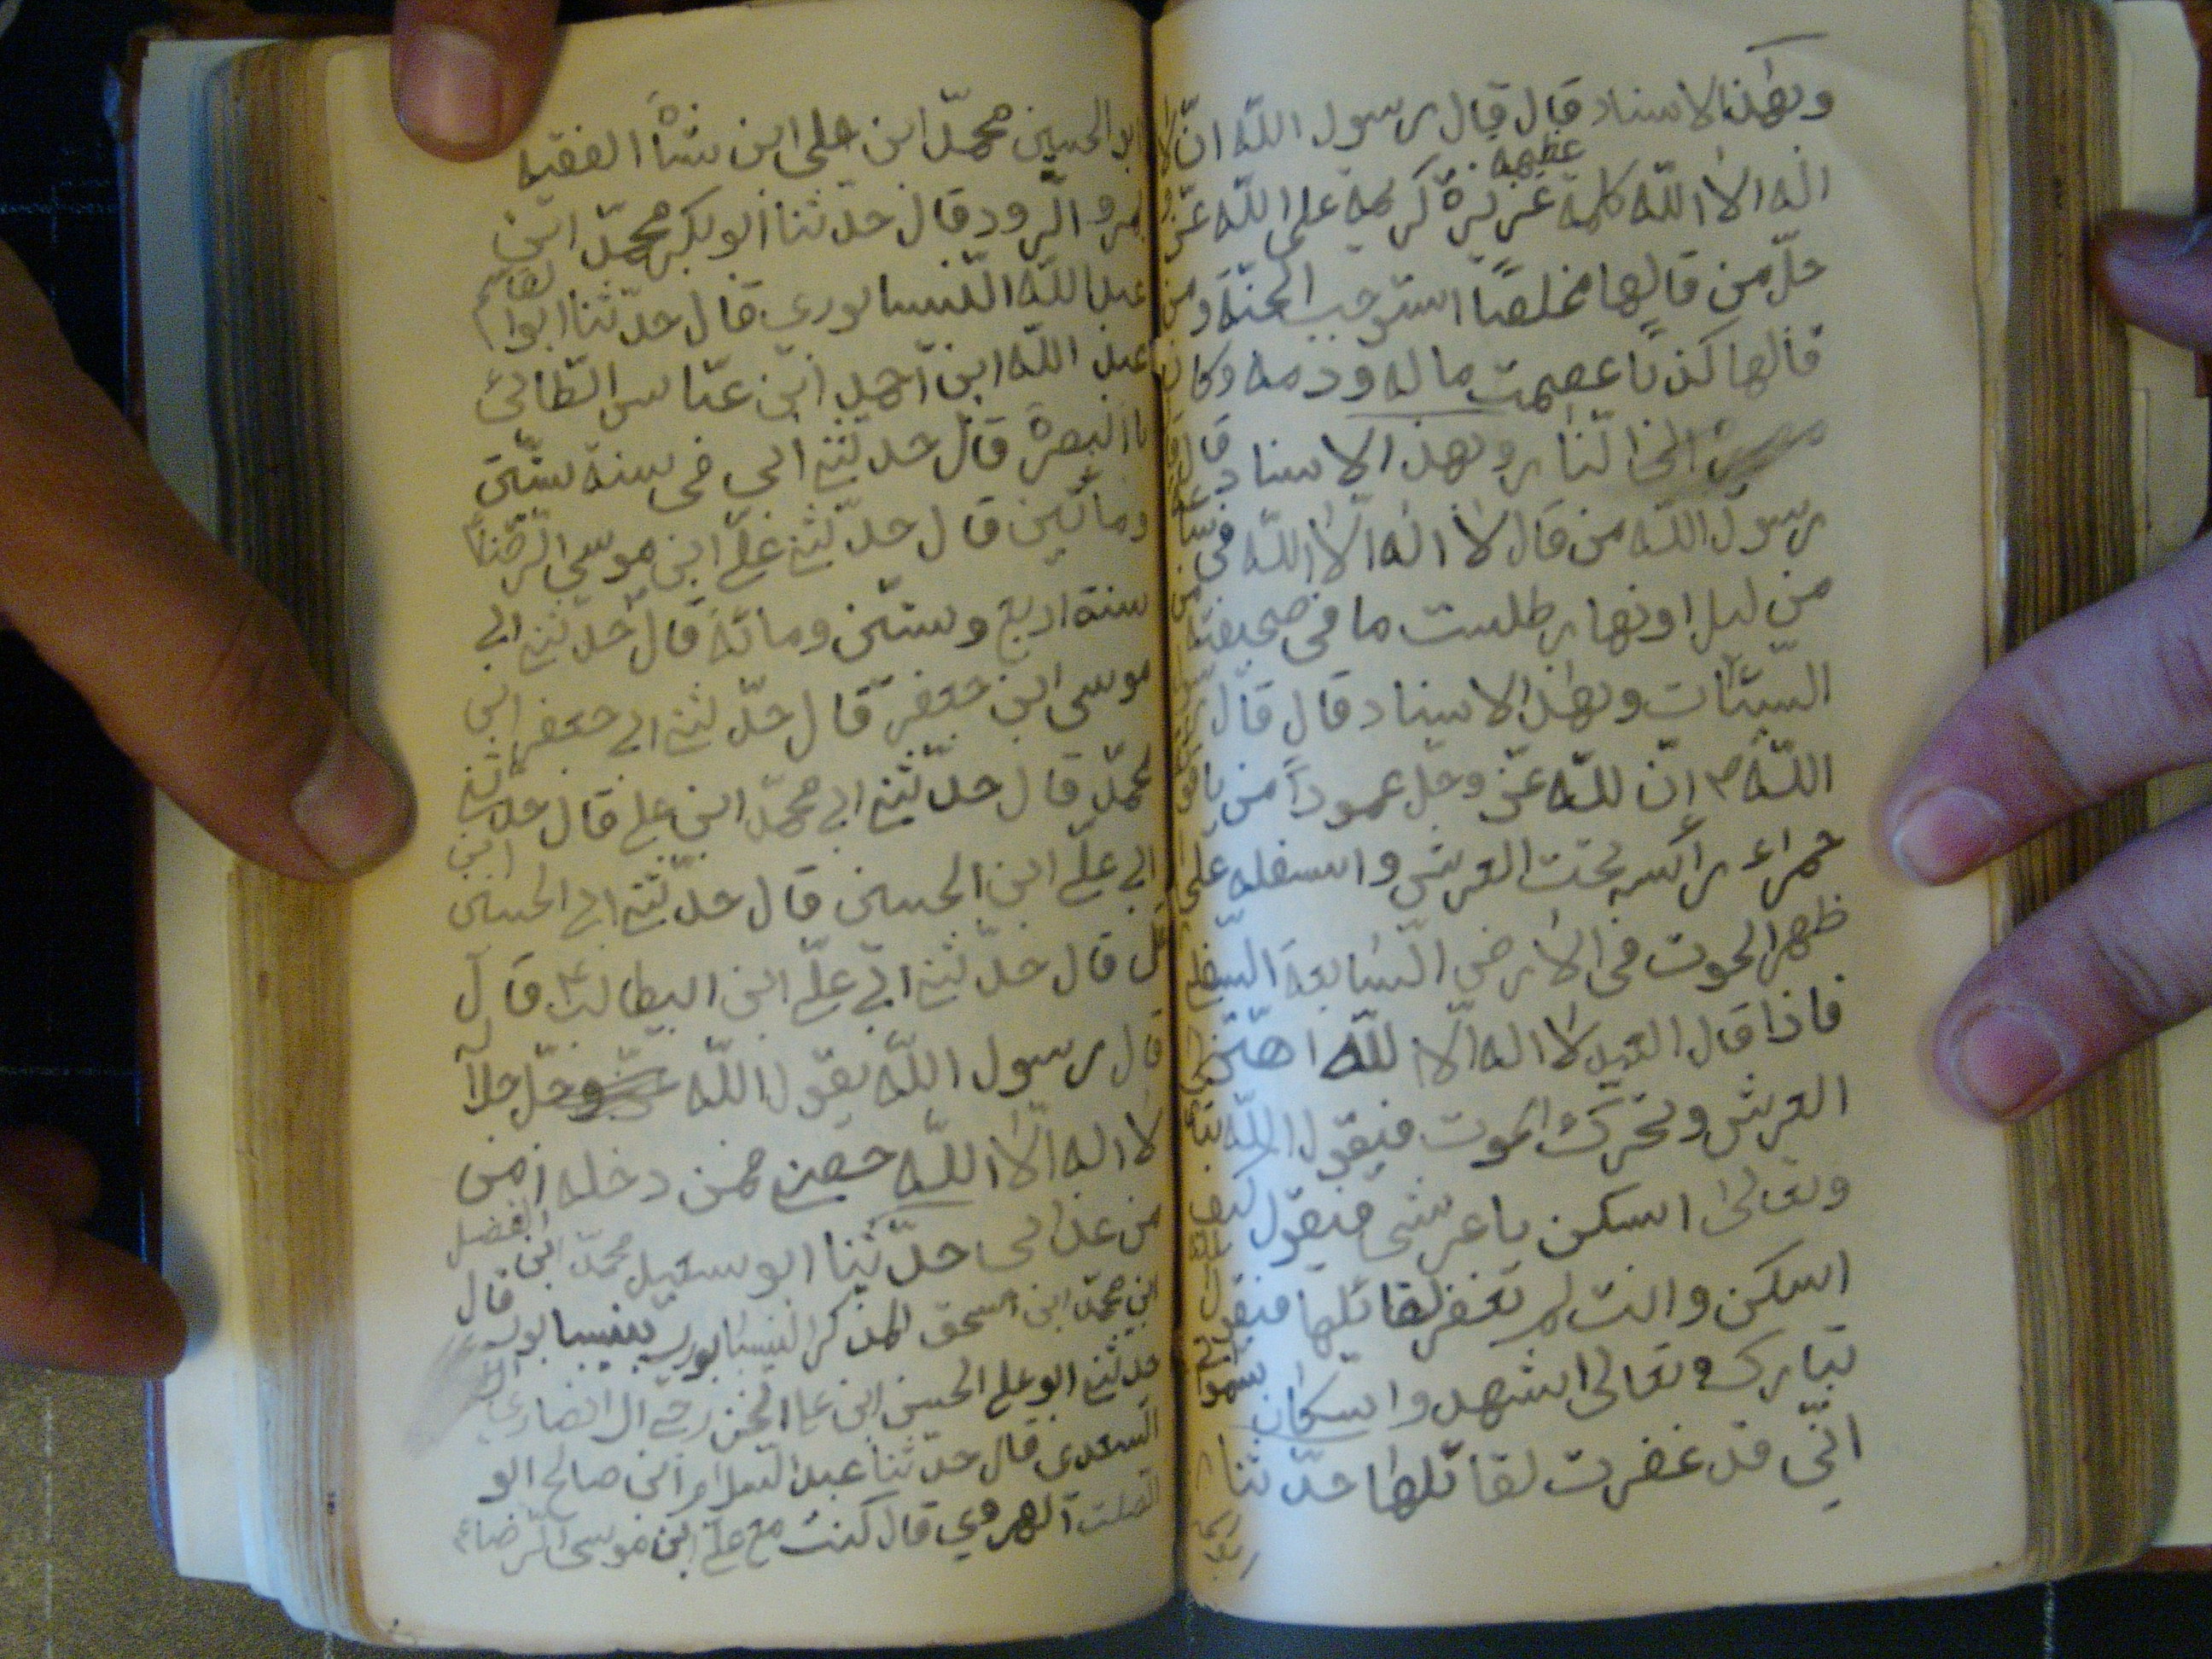 وبهذا الاسناد قال قال رسول الله انّ لا
عظیمة
اله الا الله كلمة عزيزة كريمة على الله عزّ و
جلّ من قالها مخلصًا استوجب الجنّة ومن
قالها كذبًا عصمت ماله ودمه وكان
الى النار وبهذا الاسناد قال قال
رسول الله من قال لا اله الّا الله في ساعة
من ليل او نهار طلست ما في صحيفته من
السيّئات وبهذا الاسناد قال قال رسول
اللهص إنّ للّه عزّ وجلّ عموداً من ياقوت
حمراء راسه تحت العرش واسفله على
ظهر الحوت في الارض السّابعة السفلى
فاذا قال العبد لا اله الّا للّه اهتزّ
العرش وتحرك الحوت فيقول الله تبا
وتعالى اسكن يا عرشى فيقول كيف
اسكن وانت لم تغفر لقائلها فيقول الله
تبارك وتعالى اشهدوا سكان سموا تى
انّي قد غفرت لقائلها حدّثنا
ابو الحسين محمّد ابن على ابن شاه الفقيه
بمرو الرّود قال حدّثنا ابو بكر محمّد ابن
عبد الله النيسابوري قال حدّثنا ابو القاسم
عبد الله ابن احمد ابن عبّاس الطّائي
باالبصرة قال حدّثني ابي في سنة ستّين
ومأتين قال حدّثني عليّ ابن موسى الرّضاع
سنة اربع وستين ومائة قال حدّثني ابي
موسى ابن جعفر قال حدّثني ابي جعفر ابن
محمّد قال حدّثني ابي محمّد ابن علي قال حدّثني
ابي عليّ ابن الحسين قال حدّثني ابي الحسين ابن
علي قال حدّثني ابي عليّ ابن ابيطالبع قال
قال رسول الله يقول الله جلّ جلا
لا اله الّا الله حصني فمن دخله امن
من عذابى حدّثنا ابو سعيد محمّد ابن الفضل
ابن محمّد ابن اسحق المذكر النيسابوري بنيسابور قال
حدثني ابو على الحسن ابن على الخزرجي الانصاري
السعدي قال حدثنا عبد السلام ابن صالح ابو
الصلت الهروي قال كنت مع عليّ ابن موسى الرّضاع